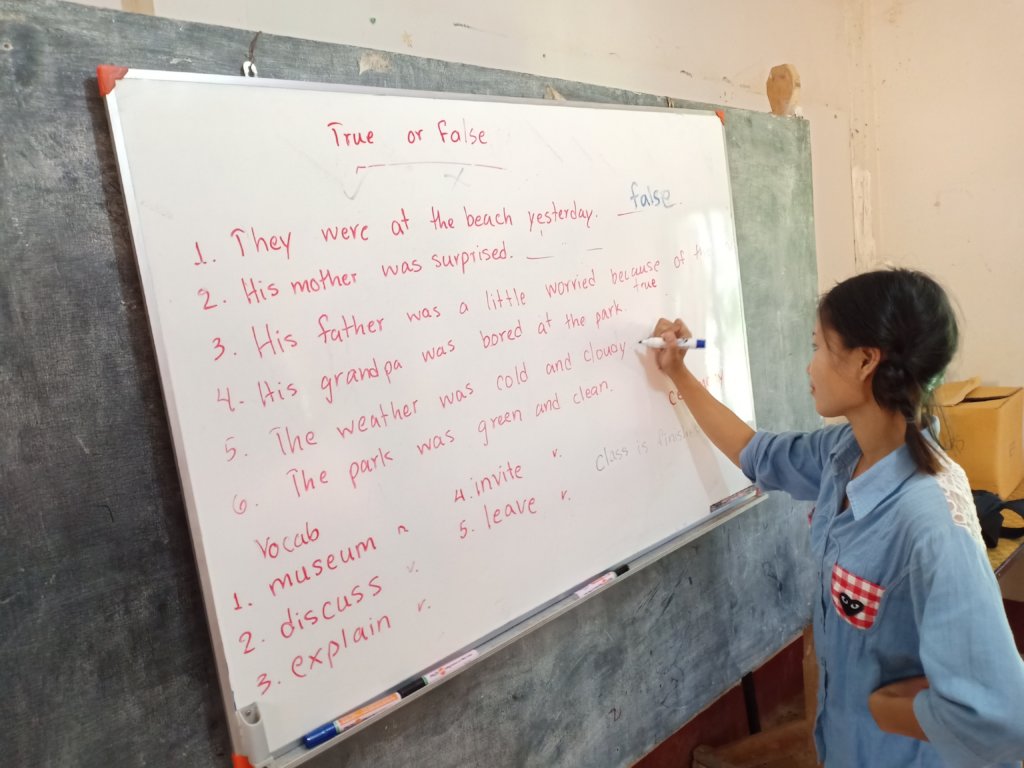 True or False
1. They were at the beach yesterday. false.
2. His mother was surprised.
3. His father was a little worried because of
4. His grandpa was bored at the park. true
5. The weather was cold and cloudy
6. The park was green and clean.
Vocab
1. museum n
2. discuss v.
3. explain v.
4. invite v.
5. leave v.
Class is